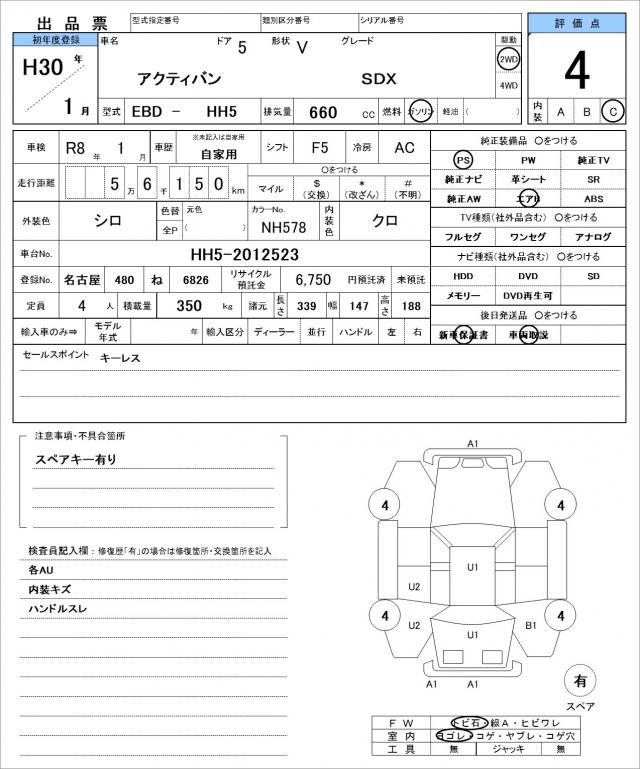 出品票 型式指定番号 類別区分番号 シリアル番号
評価点
初年度登録 車名 ドア 5 形状 V グレード 駆動
H30 年 アクティバン SDX 2WD 4
4WD
1 月 型式 EBD － HH5 排気量 660 cc 燃料 ガソリン 軽油 ( ) 内装 A B C
車検 R8 年 1 月 車歴 ※未記入は自家用 自家用 シフト F5 冷房 AC
純正装備品 〇をつける
PS PW 純正TV
走行距離 5 万 6 千 1 5 0 km 〇をつける
マイル $ (交換) * (改ざん) # (不明)
純正ナビ 革シート SR
純正AW エアB ABS
外装色 シロ 色替 元色 カラーNo. 内装色 クロ
全P ( ) NH578
TV種類(社外品含む) 〇をつける
フルセグ ワンセグ アナログ
車台No. HH5-2012523
ナビ種類(社外品含む) 〇をつける
登録No. 名古屋 480 ね 6826 リサイクル預託金 6,750 円預託済 未預託
HDD DVD SD
メモリー DVD再生可
定員 4 人 積載量 350 kg 諸元 長さ 339 幅 147 高さ 188
後日発送品 〇をつける
輸入車のみ⇒ モデル年式 年 輸入区分 ディーラー 並行 ハンドル 左 右
新車保証書 車両取説
セールスポイント キーレス
注意事項・不具合箇所
スペアキー有り
検査員記入欄：修復歴「有」の場合は修復箇所・交換箇所を記入
各AU
内装キズ
ハンドルスレ
A1
4 4
U1
U2
4 U2 B1 4
U1
A1 A1
有
スペア
FW トビ石・線A・ヒビワレ
室内 ヨゴレ・コゲ・ヤブレ・コゲ穴
工具 無 ジャッキ 無